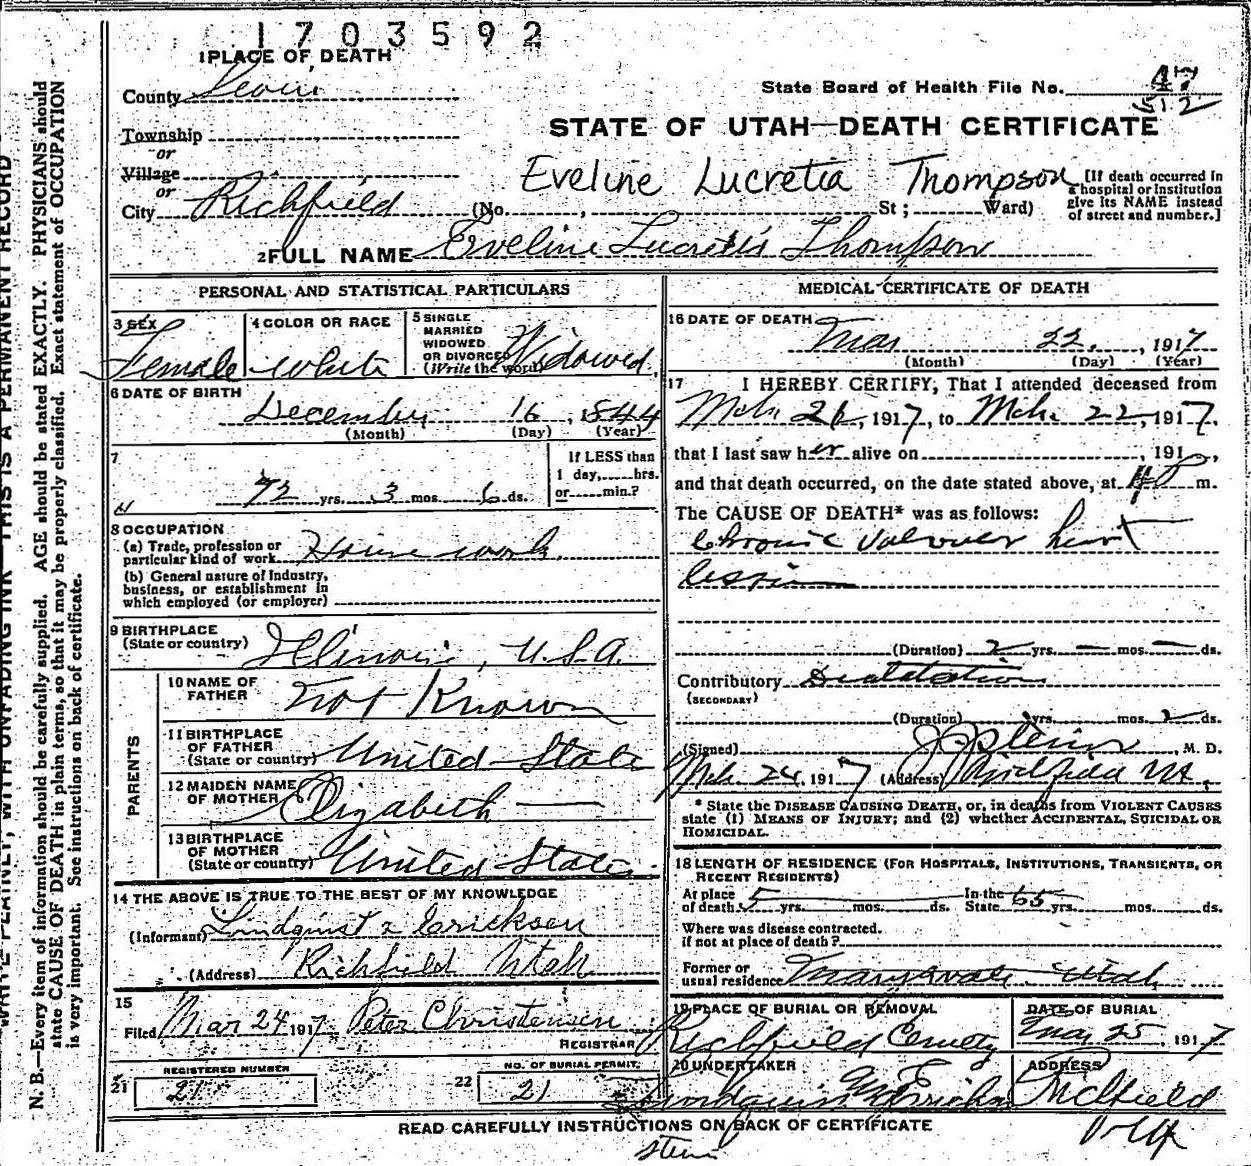 1703592
1 PLACE OF DEATH
County Sevier
State Board of Health File No. 47
512
Township
or
Village
or
City Richfield
STATE OF UTAH—DEATH CERTIFICATE
Eveline Lucretia Thompson
(No. , St ; Ward)
[If death occurred in
a hospital or Institution
give its NAME instead
of street and number.]
2 FULL NAME Eveline Lucretia Thompson
PERSONAL AND STATISTICAL PARTICULARS
3 SEX
Female
4 COLOR OR RACE
White
5 SINGLE
MARRIED
WIDOWED
OR DIVORCED
(Write the word)
Widowed.
6 DATE OF BIRTH
December 16, 1844
(Month) (Day) (Year)
7
72 yrs. 3 mos. 6 ds.
If LESS than
1 day,......hrs.
or......min.?
8 OCCUPATION
(a) Trade, profession or
particular kind of work House work
(b) General nature of Industry,
business, or establishment in
which employed (or employer)
9 BIRTHPLACE
(State or country) Illinois, U.S.A.
PARENTS
10 NAME OF
FATHER Not Known
11 BIRTHPLACE
OF FATHER
(State or country) United State
12 MAIDEN NAME
OF MOTHER Elizabeth —
13 BIRTHPLACE
OF MOTHER
(State or country) United States
14 THE ABOVE IS TRUE TO THE BEST OF MY KNOWLEDGE
(Informant) Lindquist & Ericksen
(Address) Richfield Utah
15
Filed Mar 24 1917 Peter Christensen
REGISTRAR
REGISTERED NUMBER
21 21
NO. OF BURIAL PERMIT.
22 21
MEDICAL CERTIFICATE OF DEATH
16 DATE OF DEATH
Mar 22, 1917
(Month) (Day) (Year)
17 I HEREBY CERTIFY, That I attended deceased from
Mch 21, 1917, to Mch. 22, 1917,
that I last saw her alive on , 191 ,
and that death occurred, on the date stated above, at m.
The CAUSE OF DEATH* was as follows:
Chronic valvuler heart
lession
(Duration) 2 yrs. — mos. — ds.
Contributory
(SECONDARY)
(Duration) yrs. mos. 2 ds.
(Signed) , M. D.
Mch 24, 1917 (Address) Richfield Ut.
* State the DISEASE CAUSING DEATH, or, in deaths from VIOLENT CAUSES
state (1) MEANS OF INJURY; and (2) whether ACCIDENTAL, SUICIDAL OR
HOMICIDAL.
18 LENGTH OF RESIDENCE (FOR HOSPITALS, INSTITUTIONS, TRANSIENTS, OR
RECENT RESIDENTS)
At place
of death 5 yrs. mos. ds. In the
State 65 yrs. mos. ds.
Where was disease contracted.
if not at place of death?
Former or
usual residence Marysvale Utah
19 PLACE OF BURIAL OR REMOVAL
Richfield
DATE OF BURIAL
Mar 25, 1917
20 UNDERTAKER
ADDRESS
Richfield
Utah
READ CAREFULLY INSTRUCTIONS ON BACK OF CERTIFICATE
WRITE PLAINLY, WITH UNFADING INK—THIS IS A PERMANENT RECORD
N. B.—Every item of information should be carefully supplied. AGE should be stated EXACTLY. PHYSICIANS should
state CAUSE OF DEATH in plain terms, so that it may be properly classified. Exact statement of OCCUPATION
is very important. See instructions on back of certificate.